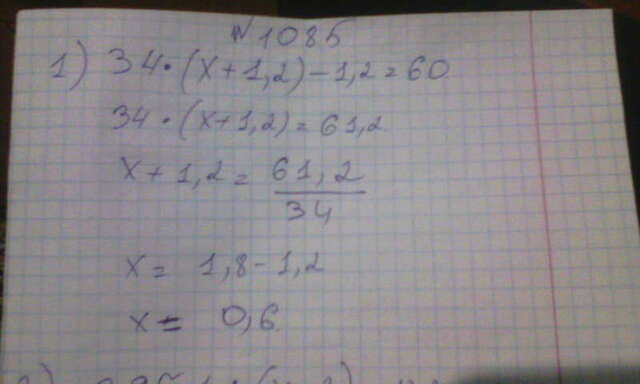 №1085
1) 34·(x+1,2)-1,2=60
34·(x+1,2)=61,2
x+1,2= 61,2/34
x= 1,8-1,2
x= 0,6